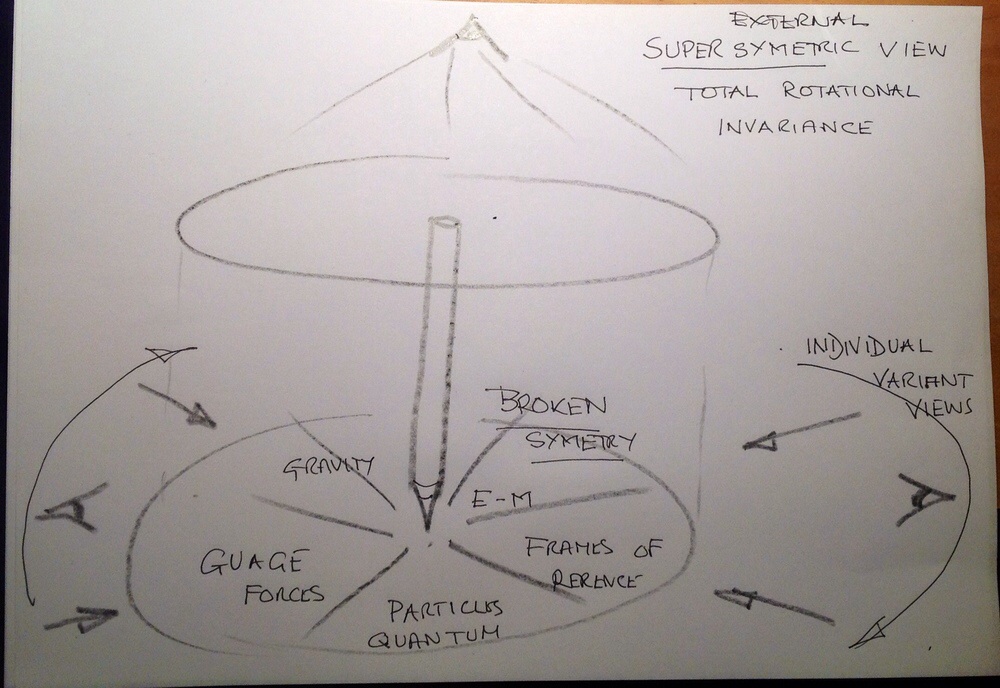 EXTERNAL
SUPER SYMETRIC VIEW
TOTAL ROTATIONAL
INVARIANCE
INDIVIDUAL
VARIANT
VIEWS
BROKEN
SYMETRY
GRAVITY
E-M
FRAMES OF
RERENCE
GUAGE
FORCES
PARTICLES
QUANTUM